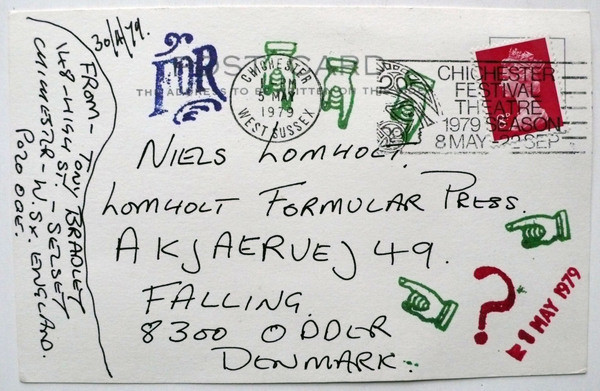 30/4/79.
FROM - TONY BRADLEY
148 - HIGH ST. - SELSEY
CHICHESTER - W. SX. ENGLAND.
PO20 OQE.
POSTCARD
THE ADDRESS TO BE WRITTEN ON THIS
CHICHESTER
PM
5 MAY
1979
WEST SUSSEX
CHICHESTER
FESTIVAL
THEATRE
1979 SEASON
8 MAY-29 SEP
NIELS LOMHOLT.
LOMHOLT FORMULAR PRESS.
AKJAERVEJ 49.
FALLING.
8300 ODDER
DENMARK.
?
8 MAY 1979